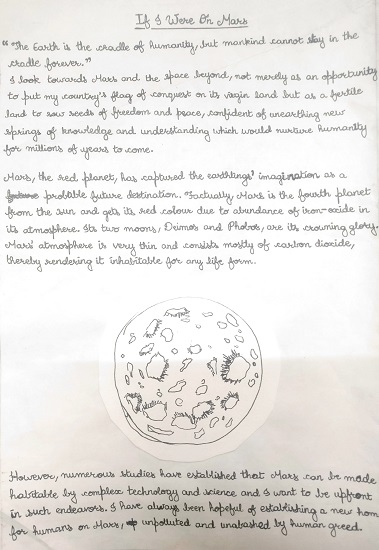 If I Were On Mars
"The Earth is the cradle of humanity, but mankind cannot stay in the
cradle forever."
I look towards Mars and the space beyond, not merely as an opportunity
to put my country's flag of conquest on its virgin land but as a fertile
land to sow seeds of freedom and peace, confident of unearthing new
springs of knowledge and understanding which would nurture humanity
for millions of years to come.
Mars, the red planet, has captured the earthlings' imagination as a
probable future destination. Factually, Mars is the fourth planet
from the sun and gets its red colour due to abundance of iron-oxide in
its atmosphere. Its two moons, Deimos and Phobos, are its crowning glory.
Mars' atmosphere is very thin and consists mostly of carbon dioxide,
thereby rendering it inhabitable for any life form.
However, numerous studies have established that Mars can be made
habitable by complex technology and science and I want to be upfront
in such endeavors. I have always been hopeful of establishing a new home
for humans on Mars, unpolluted and unabashed by human greed.